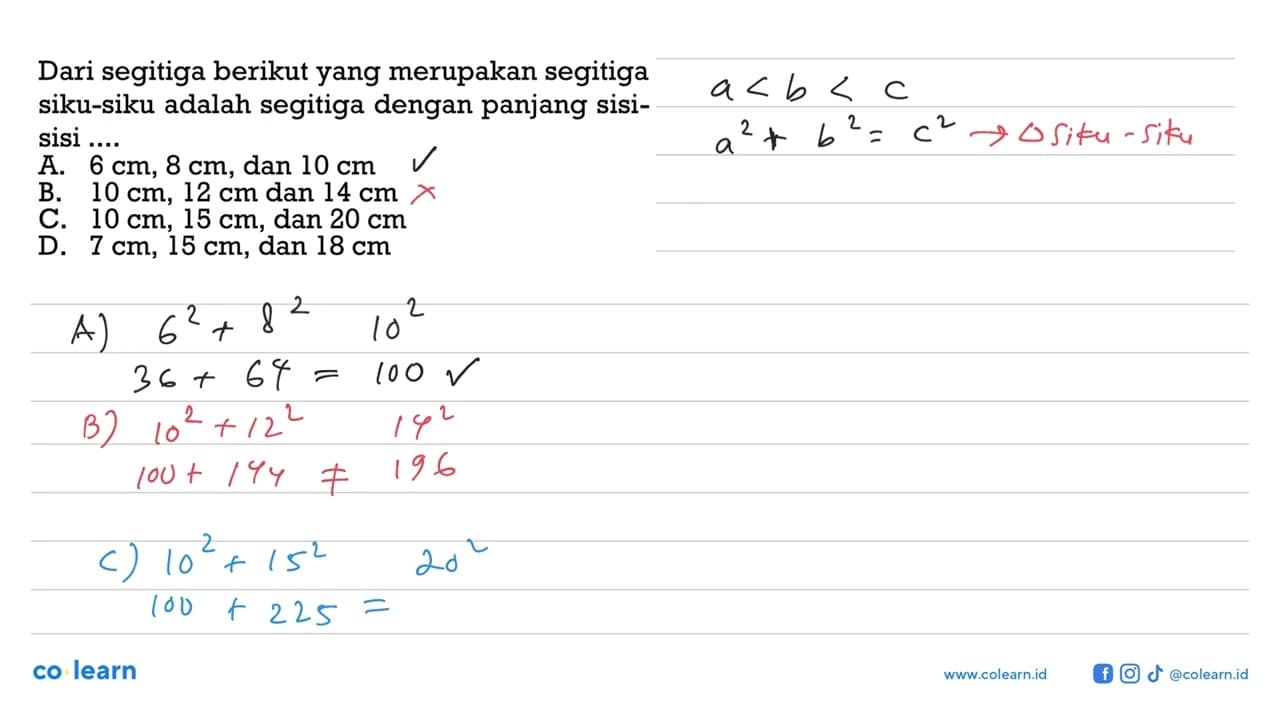 Dari segitiga berikut yang merupakan segitiga
siku-siku adalah segitiga dengan panjang sisi-
sisi ....
A. 6 cm, 8 cm, dan 10 cm ✓
B. 10 cm, 12 cm dan 14 cm ×
C. 10 cm, 15 cm, dan 20 cm
D. 7 cm, 15 cm, dan 18 cm
a < b < c
a² + b² = c² → △ siku-siku
A) 6² + 8² 10²
36 + 64 = 100 ✓
B) 10² + 12² 14²
100 + 144 ≠ 196
C) 10² + 15² 20²
100 + 225 =
co learn
www.colearn.id
@colearn.id